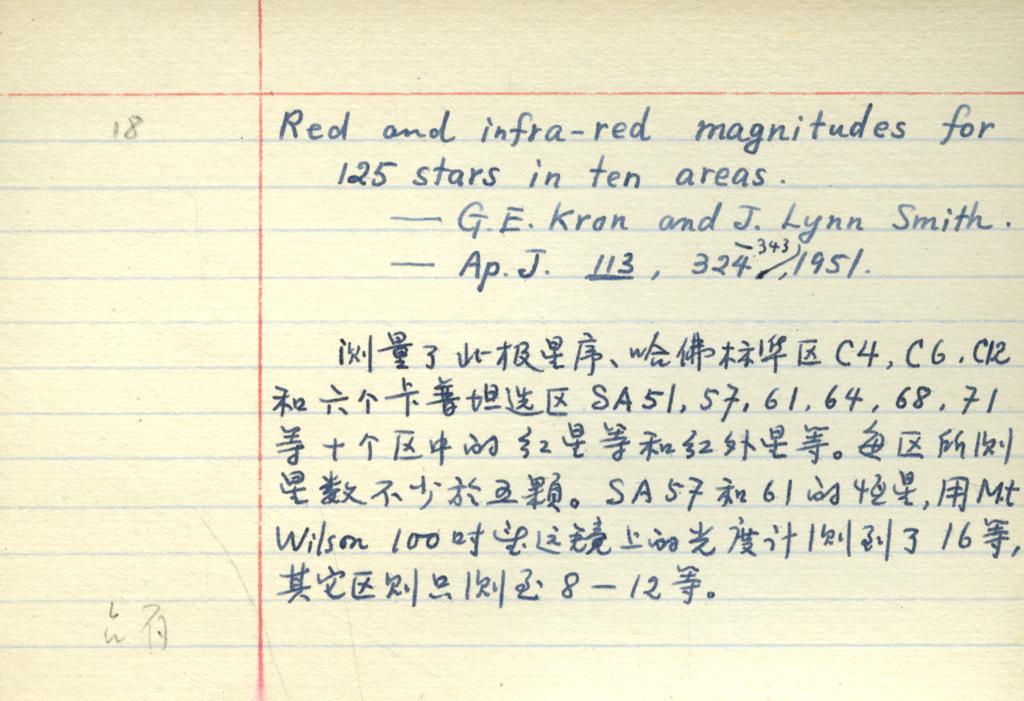 18
Red and infra-red magnitudes for
125 stars in ten areas.
— G.E. Kron and J. Lynn Smith.
— Ap. J. 113, 324-343, 1951.
测量了北极星序、哈佛标准区 C4, C6, C12
和六个卡普坦选区 SA51, 57, 61, 64, 68, 71
等十个区中的红星等和红外星等。每区所测
星数不少於五颗。SA57和61的恒星,用Mt
Wilson 100吋望远镜上的光度计测到了16等,
其它区则只测至8—12等。